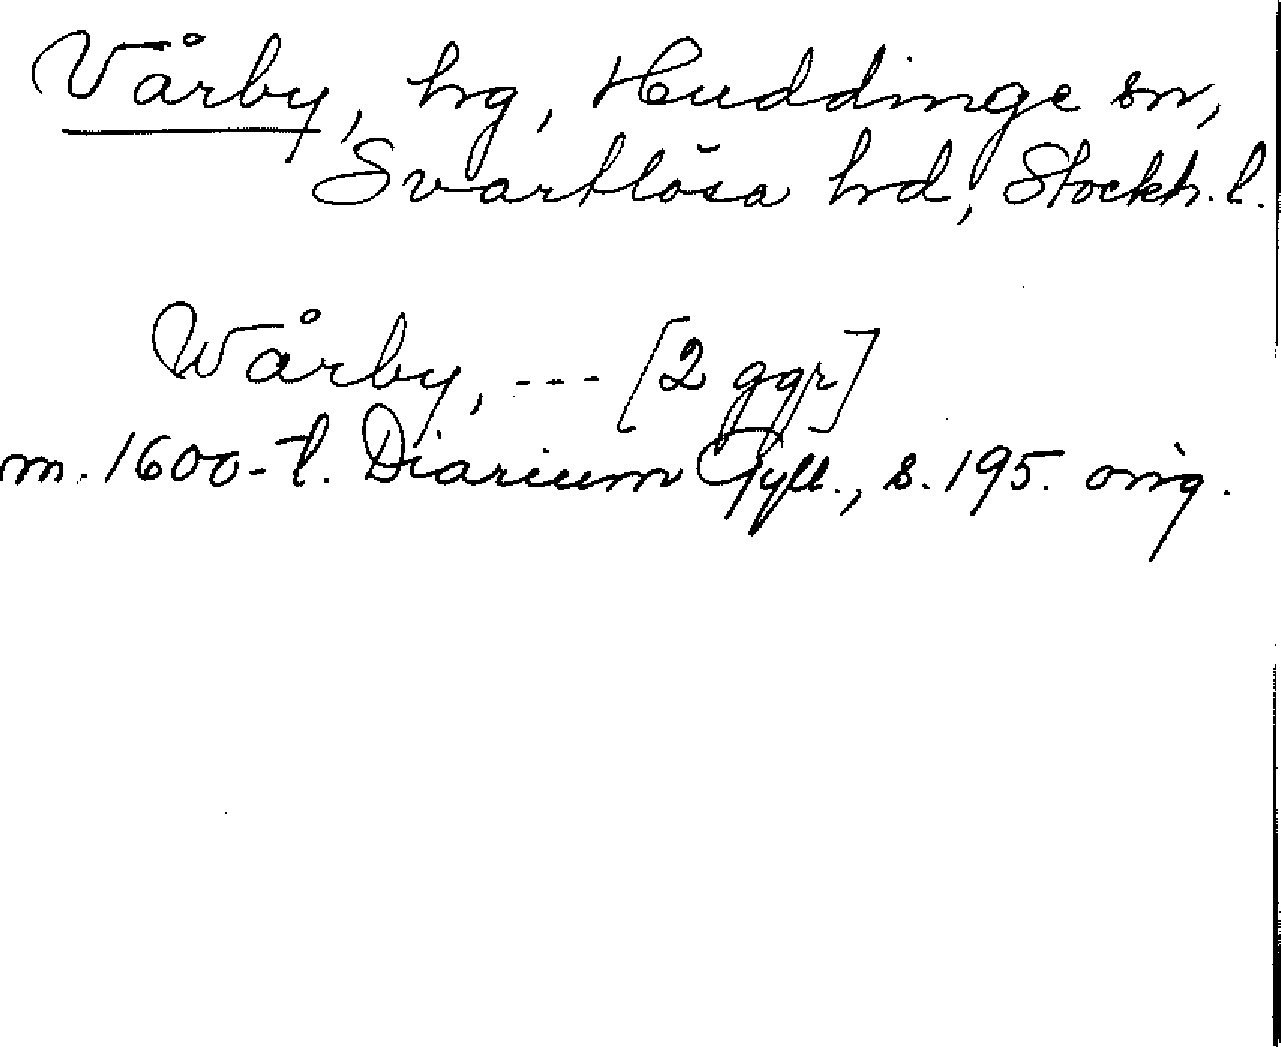 Vårby, hg, Huddinge sn,
Svartlösa hrd, Stockh. l.
Wårby, --- [2 ggr]
m. 1600-t. Diarium Gyll., s. 195. orig.